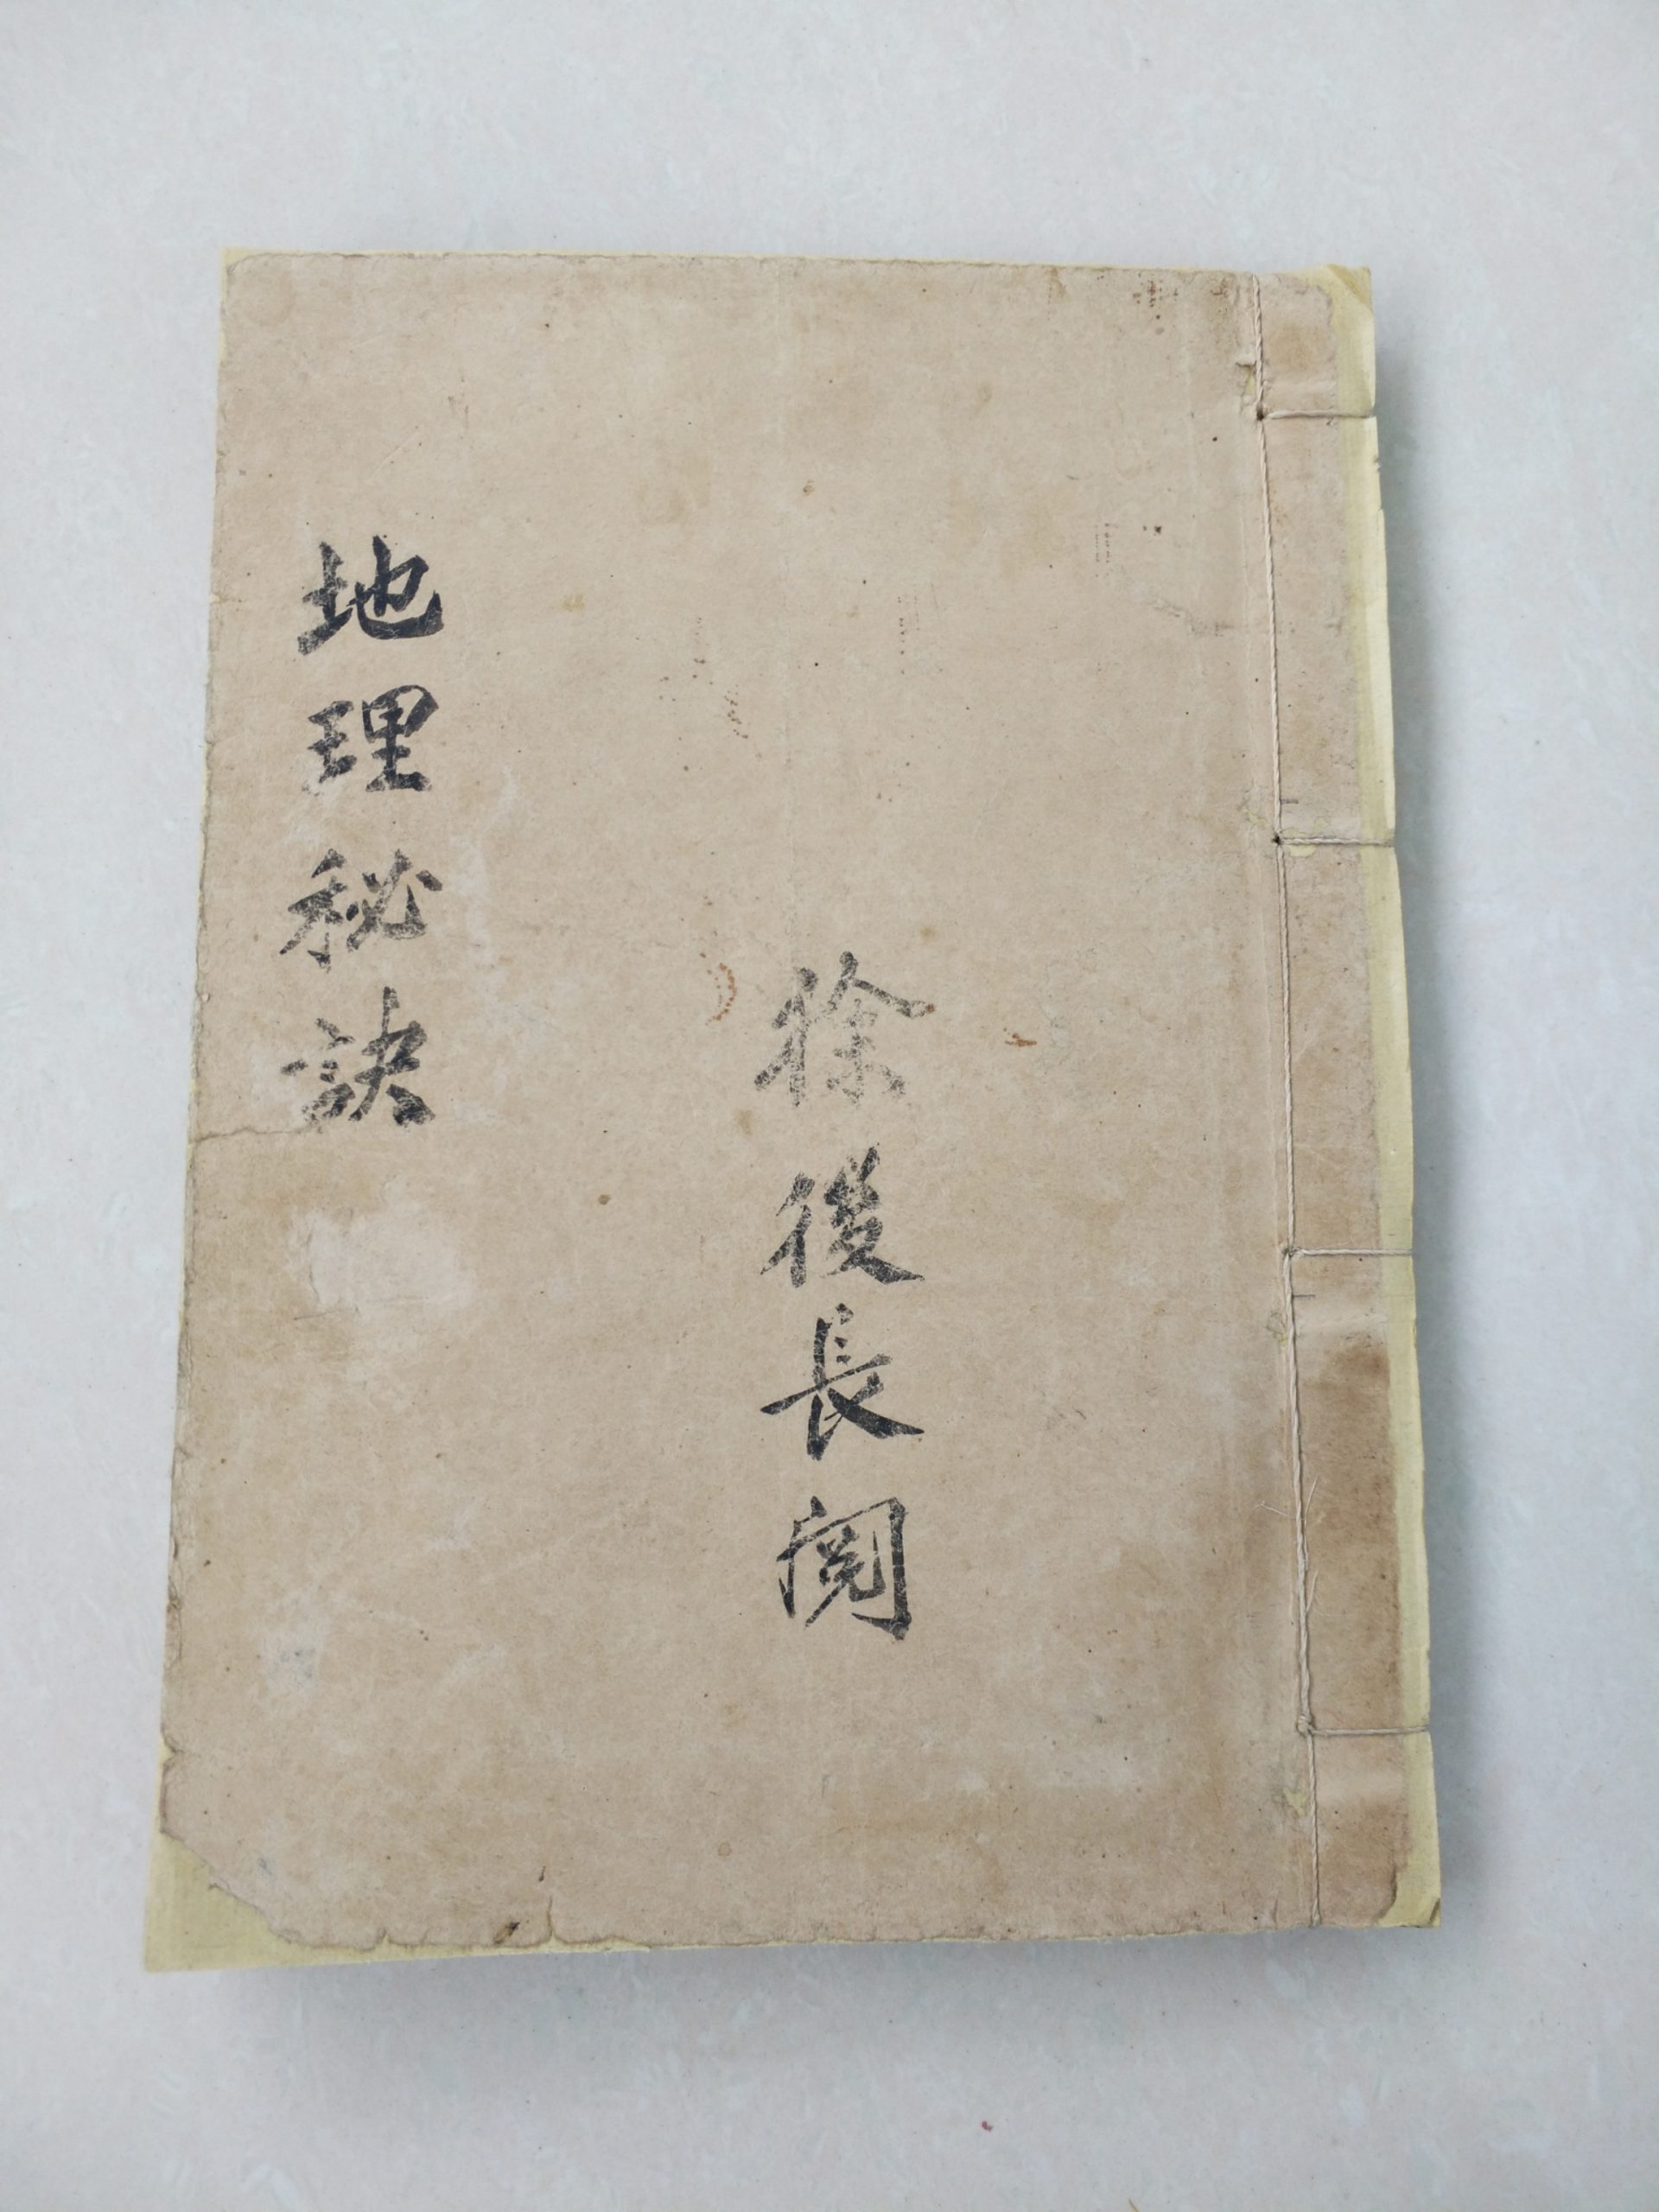 地理秘訣
徐後長閱